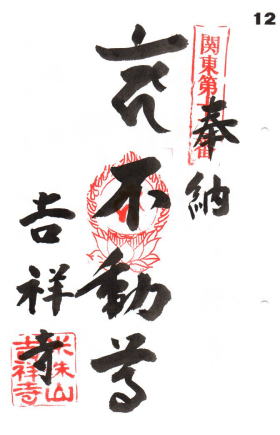 12
関東第
奉納
不動尊
吉祥寺
吉祥寺